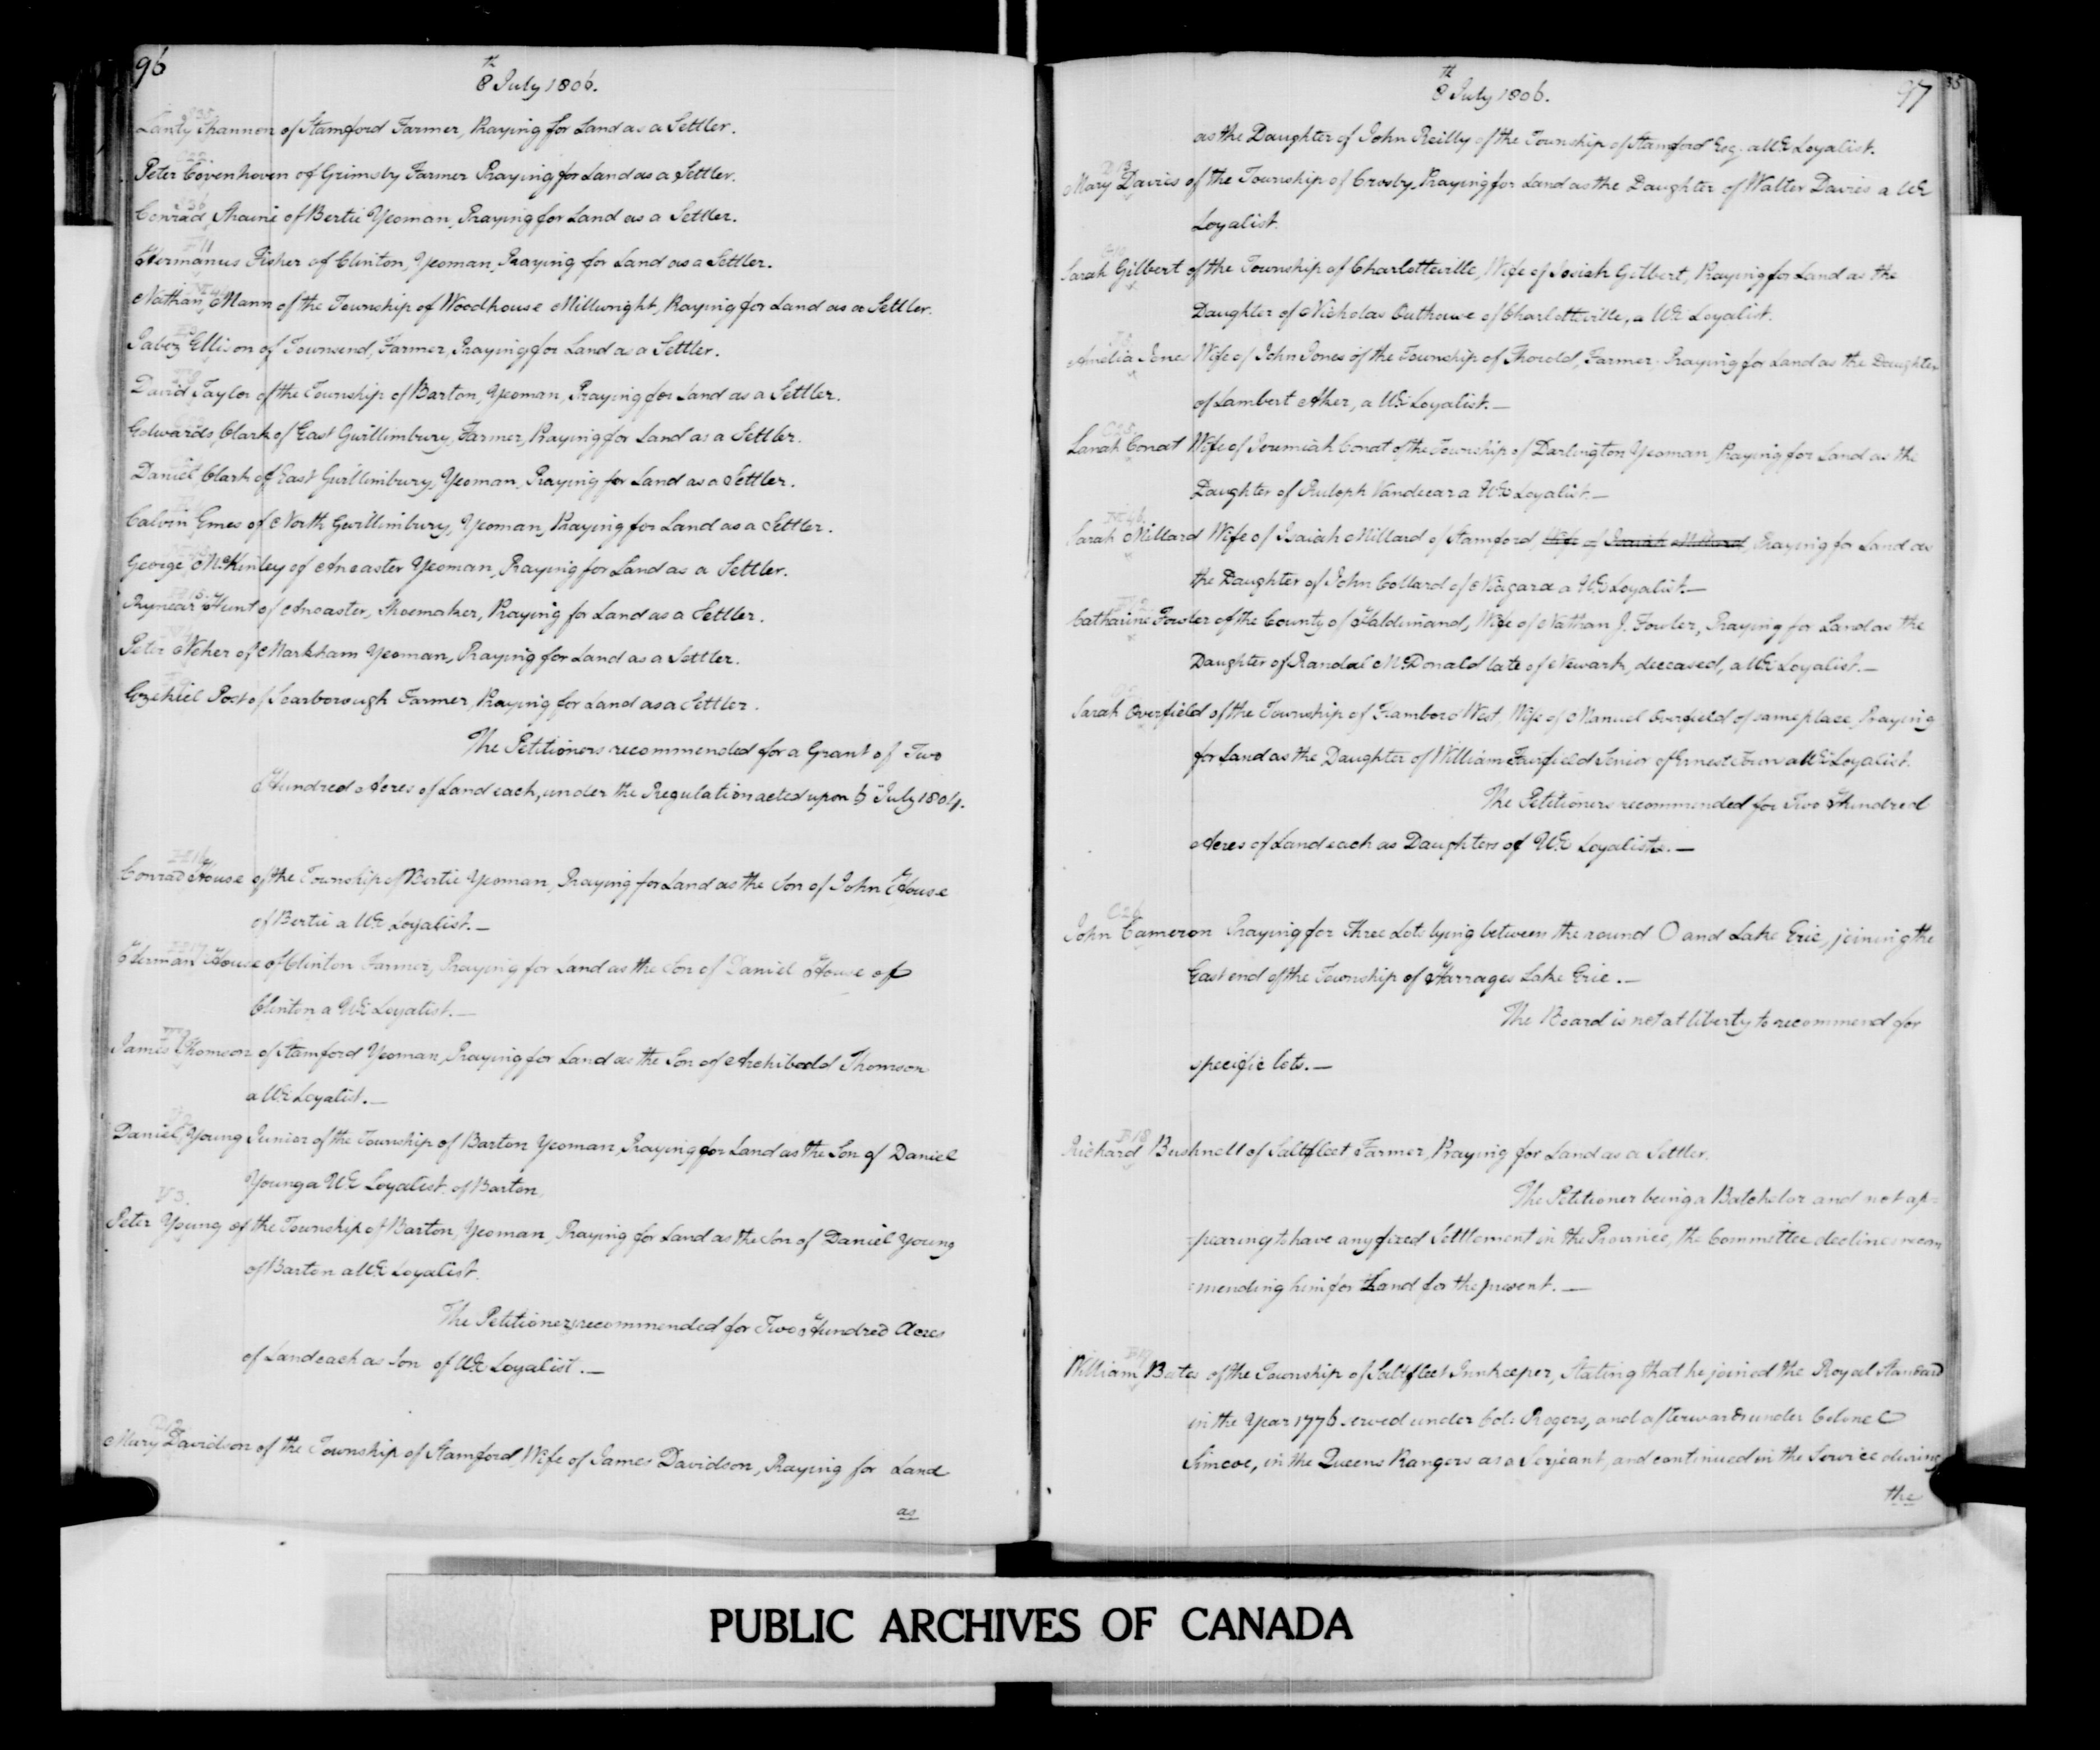 96
8th July 1806.
Lanty Shannon of Stamford Farmer, Praying for Land as a Settler.
Peter Covenhoven of Grimsby Farmer Praying for Land as a Settler.
Conrad of Bertie Yeoman, Praying for Land as a Settler.
Hermanus Fisher of Clinton, Yeoman, Praying for Land as a Settler.
Nathan Mann of the Township of Woodhouse Millwright, Praying for Land as a Settler.
Jabez Ellison of Townsend, Farmer, Praying for Land as a Settler.
David Taylor of the Township of Barton, Yeoman, Praying for Land as a Settler.
Edwards Clark of East Gwillimbury, Farmer, Praying for Land as a Settler.
Daniel Clark of East Gwillimbury, Yeoman, Praying for Land as a Settler.
Calvin Emes of North Gwillimbury, Yeoman, Praying for Land as a Settler.
George McKinley of Ancaster Yeoman, Praying for Land as a Settler.
Rynear Hunt of Ancaster, Shoemaker, Praying for Land as a Settler.
Peter Neher of Markham Yeoman, Praying for Land as a Settler.
Ezekiel Post of Scarborough Farmer, Praying for Land as a Settler.
The Petitioners recommended for a Grant of Two
Hundred Acres of Land each, under the Regulation acted upon 6th July 1804.
H16
Conrad House of the Township of Bertie Yeoman, Praying for Land as the Son of John House
of Bertie a UE Loyalist.—
H17
Herman House of Clinton Farmer, Praying for Land as the Son of Daniel House of
Clinton a UE Loyalist.—
James Thomson of Stamford Yeoman, Praying for Land as the Son of Archibald Thomson
a UE Loyalist.—
Daniel Young Junior of the Township of Barton Yeoman, Praying for Land as the Son of Daniel
Young a UE Loyalist of Barton.
Y3.
Peter Young of the Township of Barton, Yeoman, Praying for Land as the Son of Daniel Young
of Barton a UE Loyalist.
The Petitioners recommended for Two Hundred Acres
of Land each as Son of UE Loyalist.—
Mary Davidson of the Township of Stamford, Wife of James Davidson, Praying for Land
as
8th July 1806.
97
35
as the Daughter of John Reilly of the Township of Stamford Esq. a UE Loyalist.
D13
Mary Davies of the Township of Crosby, Praying for Land as the Daughter of Walter Davies a UE
Loyalist.
Sarah Gilbert of the Township of Charlotteville, Wife of Josiah Gilbert, Praying for Land as the
Daughter of Nicholas Outhouse of Charlotteville, a UE Loyalist.
Amelia Jones Wife of John Jones of the Township of Thorold, Farmer. Praying for Land as the Daughter
of Lambert Aker, a UE Loyalist.—
C25.
Sarah Conat Wife of Jeremiah Conat of the Township of Darlington Yeoman, Praying for Land as the
Daughter of Ruloph Vandecar a UE Loyalist.—
M46.
Sarah Millard Wife of Isaiah Millard of Stamford, Wife of Isaiah Millard, Praying for Land as
the Daughter of John Collard of Niagara a UE Loyalist.—
Catharine Fowler of the County of Haldimand, Wife of Nathan J. Fowler, Praying for Land as the
Daughter of Randal McDonald late of Newark, deceased, a UE Loyalist.—
Sarah Overfield of the Township of Flamboro West, Wife of Manuel Overfield of same place, Praying
for Land as the Daughter of William Fairfield Senior of Ernest Town a UE Loyalist.
The Petitioners recommended for Two Hundred
Acres of Land each as Daughters of UE Loyalists.—
C26
John Cameron Praying for Three Lots lying between the round O and Lake Erie, joining the
East end of the Township of Harrages Lake Erie.—
The Board is not at liberty to recommend for
specific lots.—
B18
Richard Bushnell of Saltfleet Farmer, Praying for Land as a Settler.
The Petitioner being a Batchelor and not ap-
-pearing to have any fixed Settlement in the Province, the Committee declines recom
-mending him for Land for the present.—
B17
William Bates of the Township of Saltfleet Innkeeper, Stating that he joined the Royal Standard
in the Year 1776 served under Col. Rogers, and afterwards under Colonel
Simcoe, in the Queens Rangers as a Serjeant, and continued in the Service during
the
PUBLIC ARCHIVES OF CANADA